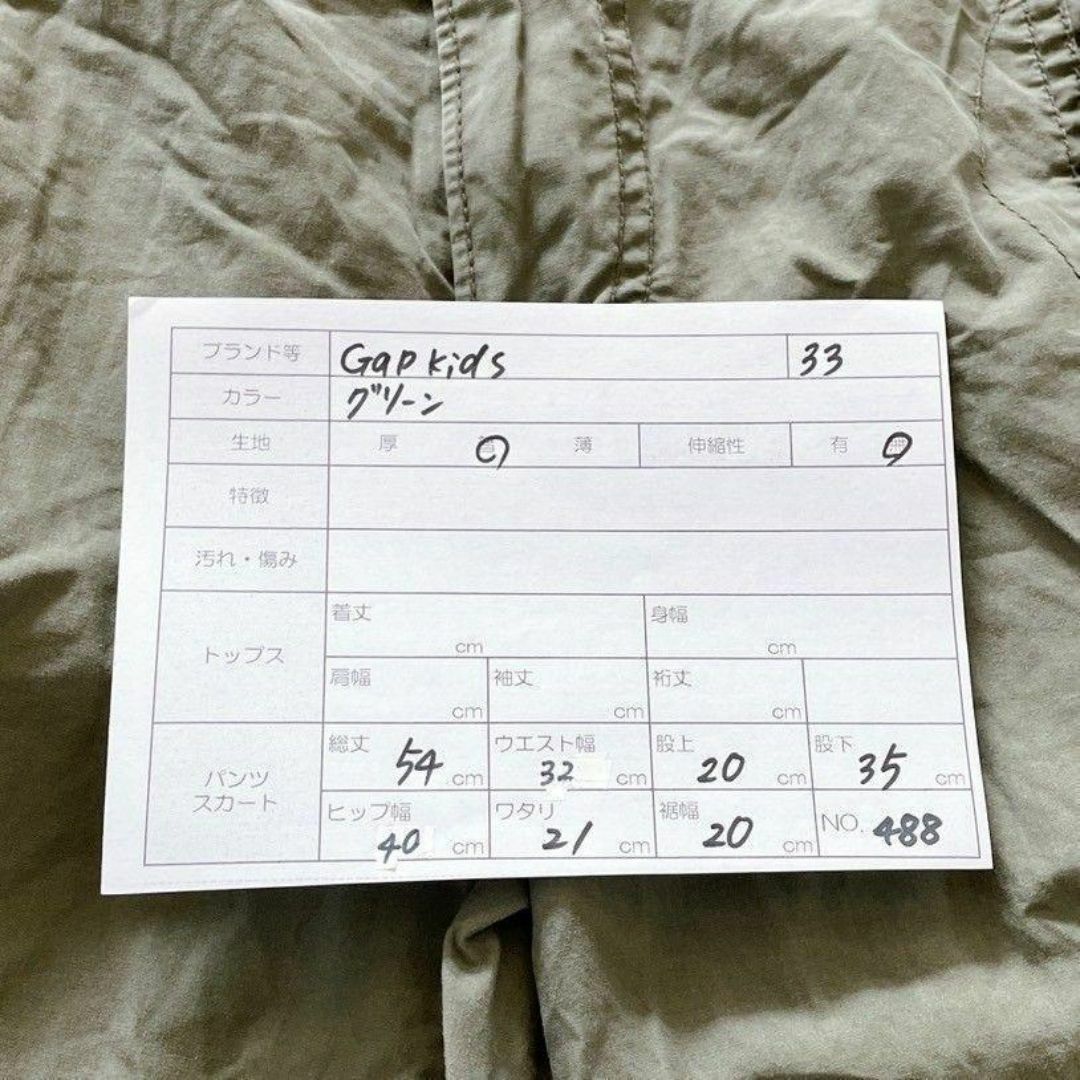 ブランド等 Gap kids 33
カラー グリーン
生地 厚 普 薄 伸縮性 有 無
特徴
汚れ・傷み
トップス
着丈 cm 身幅 cm
肩幅 cm 袖丈 cm 裄丈 cm
パンツ
スカート
総丈 54 cm ウエスト幅 32 cm 股上 20 cm 股下 35 cm
ヒップ幅 40 cm ワタリ 21 cm 裾幅 20 cm NO. 488